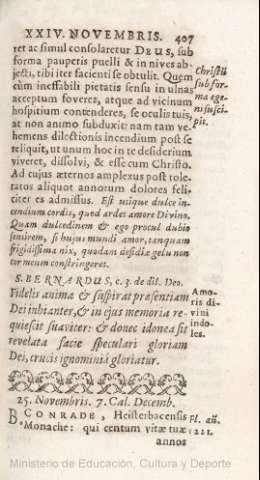 XXIV. NOVEMBRIS. 407
ret ac simul consolaretur DEUS, sub
forma pauperis puelli & in nives ab-
jecti, tibi iter facienti se obtulit. Quem
cùm ineffabili pietatis sensu in ulnas
acceptum foveres, atque ad vicinum
hospitium contenderes, se oculis tuis,
at non animo subduxit: nam tam ve-
hemens dilectionis incendium post se
reliquit, ut unum hoc in te desiderium
viveret, dissolvi, & esse cum Christo.
Ad cujus æternos amplexus post tole-
ratos aliquot annorum dolores feli-
citer es admissus. Est utique dulce in-
cendium cordis, quod ardes amore Divino.
Quam dulcedinem & ego procul dubio
sentirem, si hujus mundi amor, tanquam
frigidissima nix, quodam desidiæ gelu non
cor meum constringeret.
Christũ
sub for-
ma ege-
ni susci-
pit.
S. BERNARDUS, c. 3. de dil. Deo.
Fidelis anima & suspirat præsentiam
Dei inhianter, & in ejus memoria re-
quiescit suaviter: & donec idonea sit
revelata facie speculari gloriam
Dei, crucis ignominiâ gloriatur.
Amo-
ris di-
vini
indo-
les.
25. Novembris. 7. Cal. Decemb.
B. CONRADE, Heisterbacensis
Monache: qui centum vitæ tuæ
annos
Pl. añ.
1221.
Ministerio de Educación, Cultura y Deporte